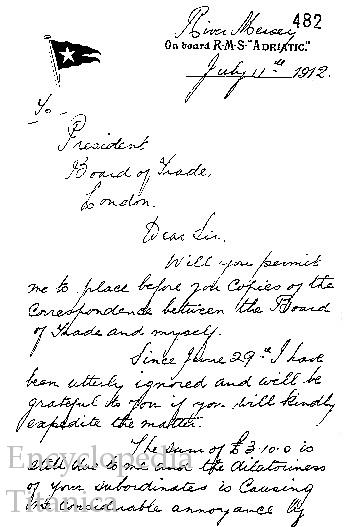 482
River Mersey
On board R·M·S·"ADRIATIC."
July 11th 1912.
To -
President
Board of Trade,
London.
Dear Sir,
Will you permit
me to place before you Copies of the
correspondence between the Board
of Trade and myself.
Since June 29th I have
been utterly ignored and will be
grateful to you if you will kindly
expedite the matter.
The sum of £3·10·0 is
still due to me and the dilatoriness
of your subordinates is causing
me considerable annoyance by
Encyclopedia
Titanica